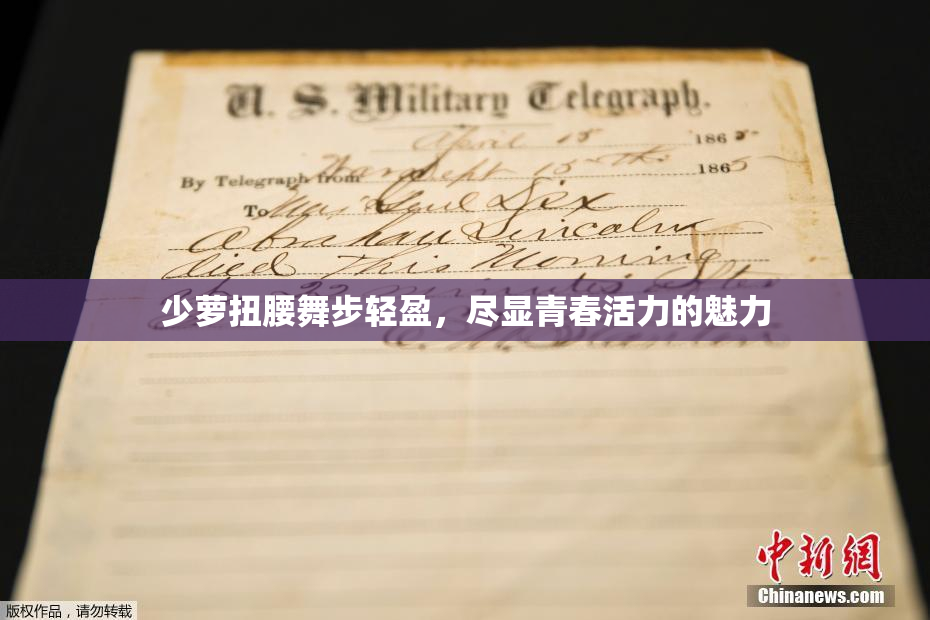 U. S. Military Telegraph.
April 15 1865
By Telegraph from War Dept 15th 1865
To Maj Genl Dix
Abraham Lincoln
died This Morning
22 minutes after
少萝扭腰舞步轻盈，尽显青春活力的魅力
E. M. Stanton
中新网
Chinanews.com
版权作品，请勿转载